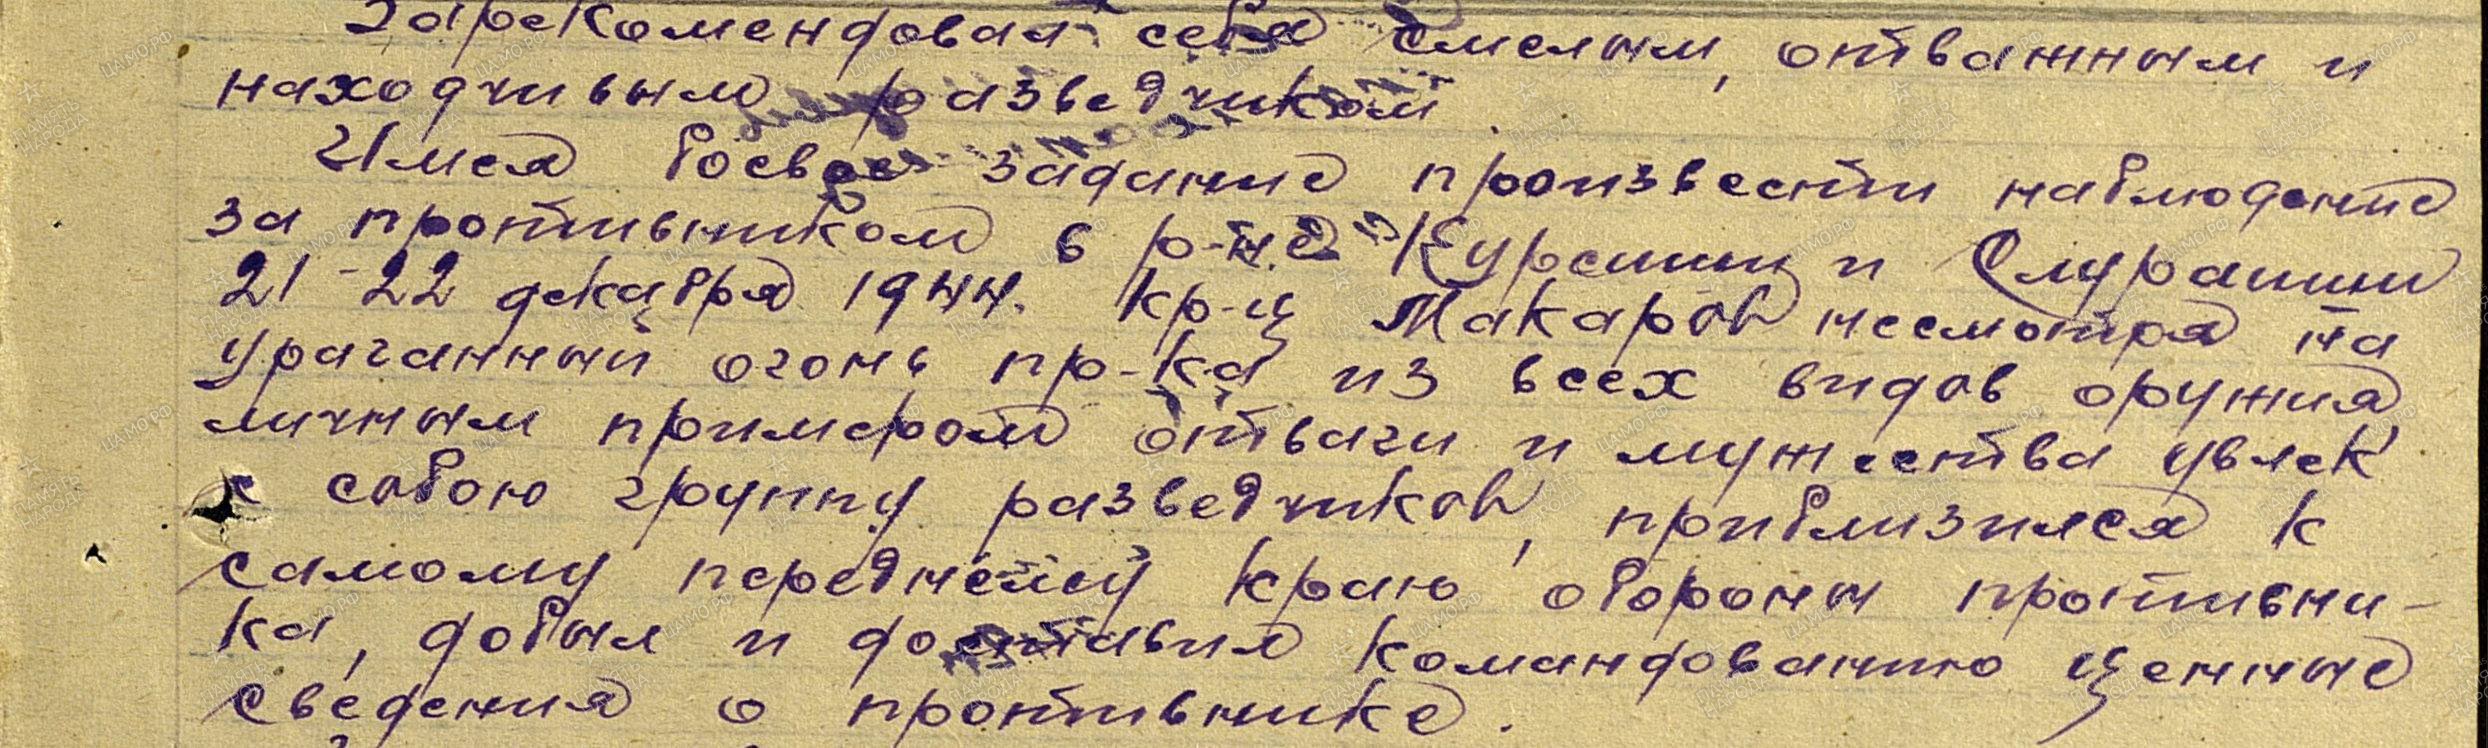 Зарекомендовал себя смелым, отважным и
находчивым разведчиком.
Имея боевое задание произвести наблюдение
за противником в р-не Курсиши и Смураиши
21-22 декабря 1944. кр-ц Макаров несмотря на
ураганный огонь пр-ка из всех видов оружия
личным примером отваги и мужества увлек
с собою группу разведчиков, приблизился к
самому переднему краю обороны противни-
ка, добыл и доставил командованию ценные
сведения о противнике.